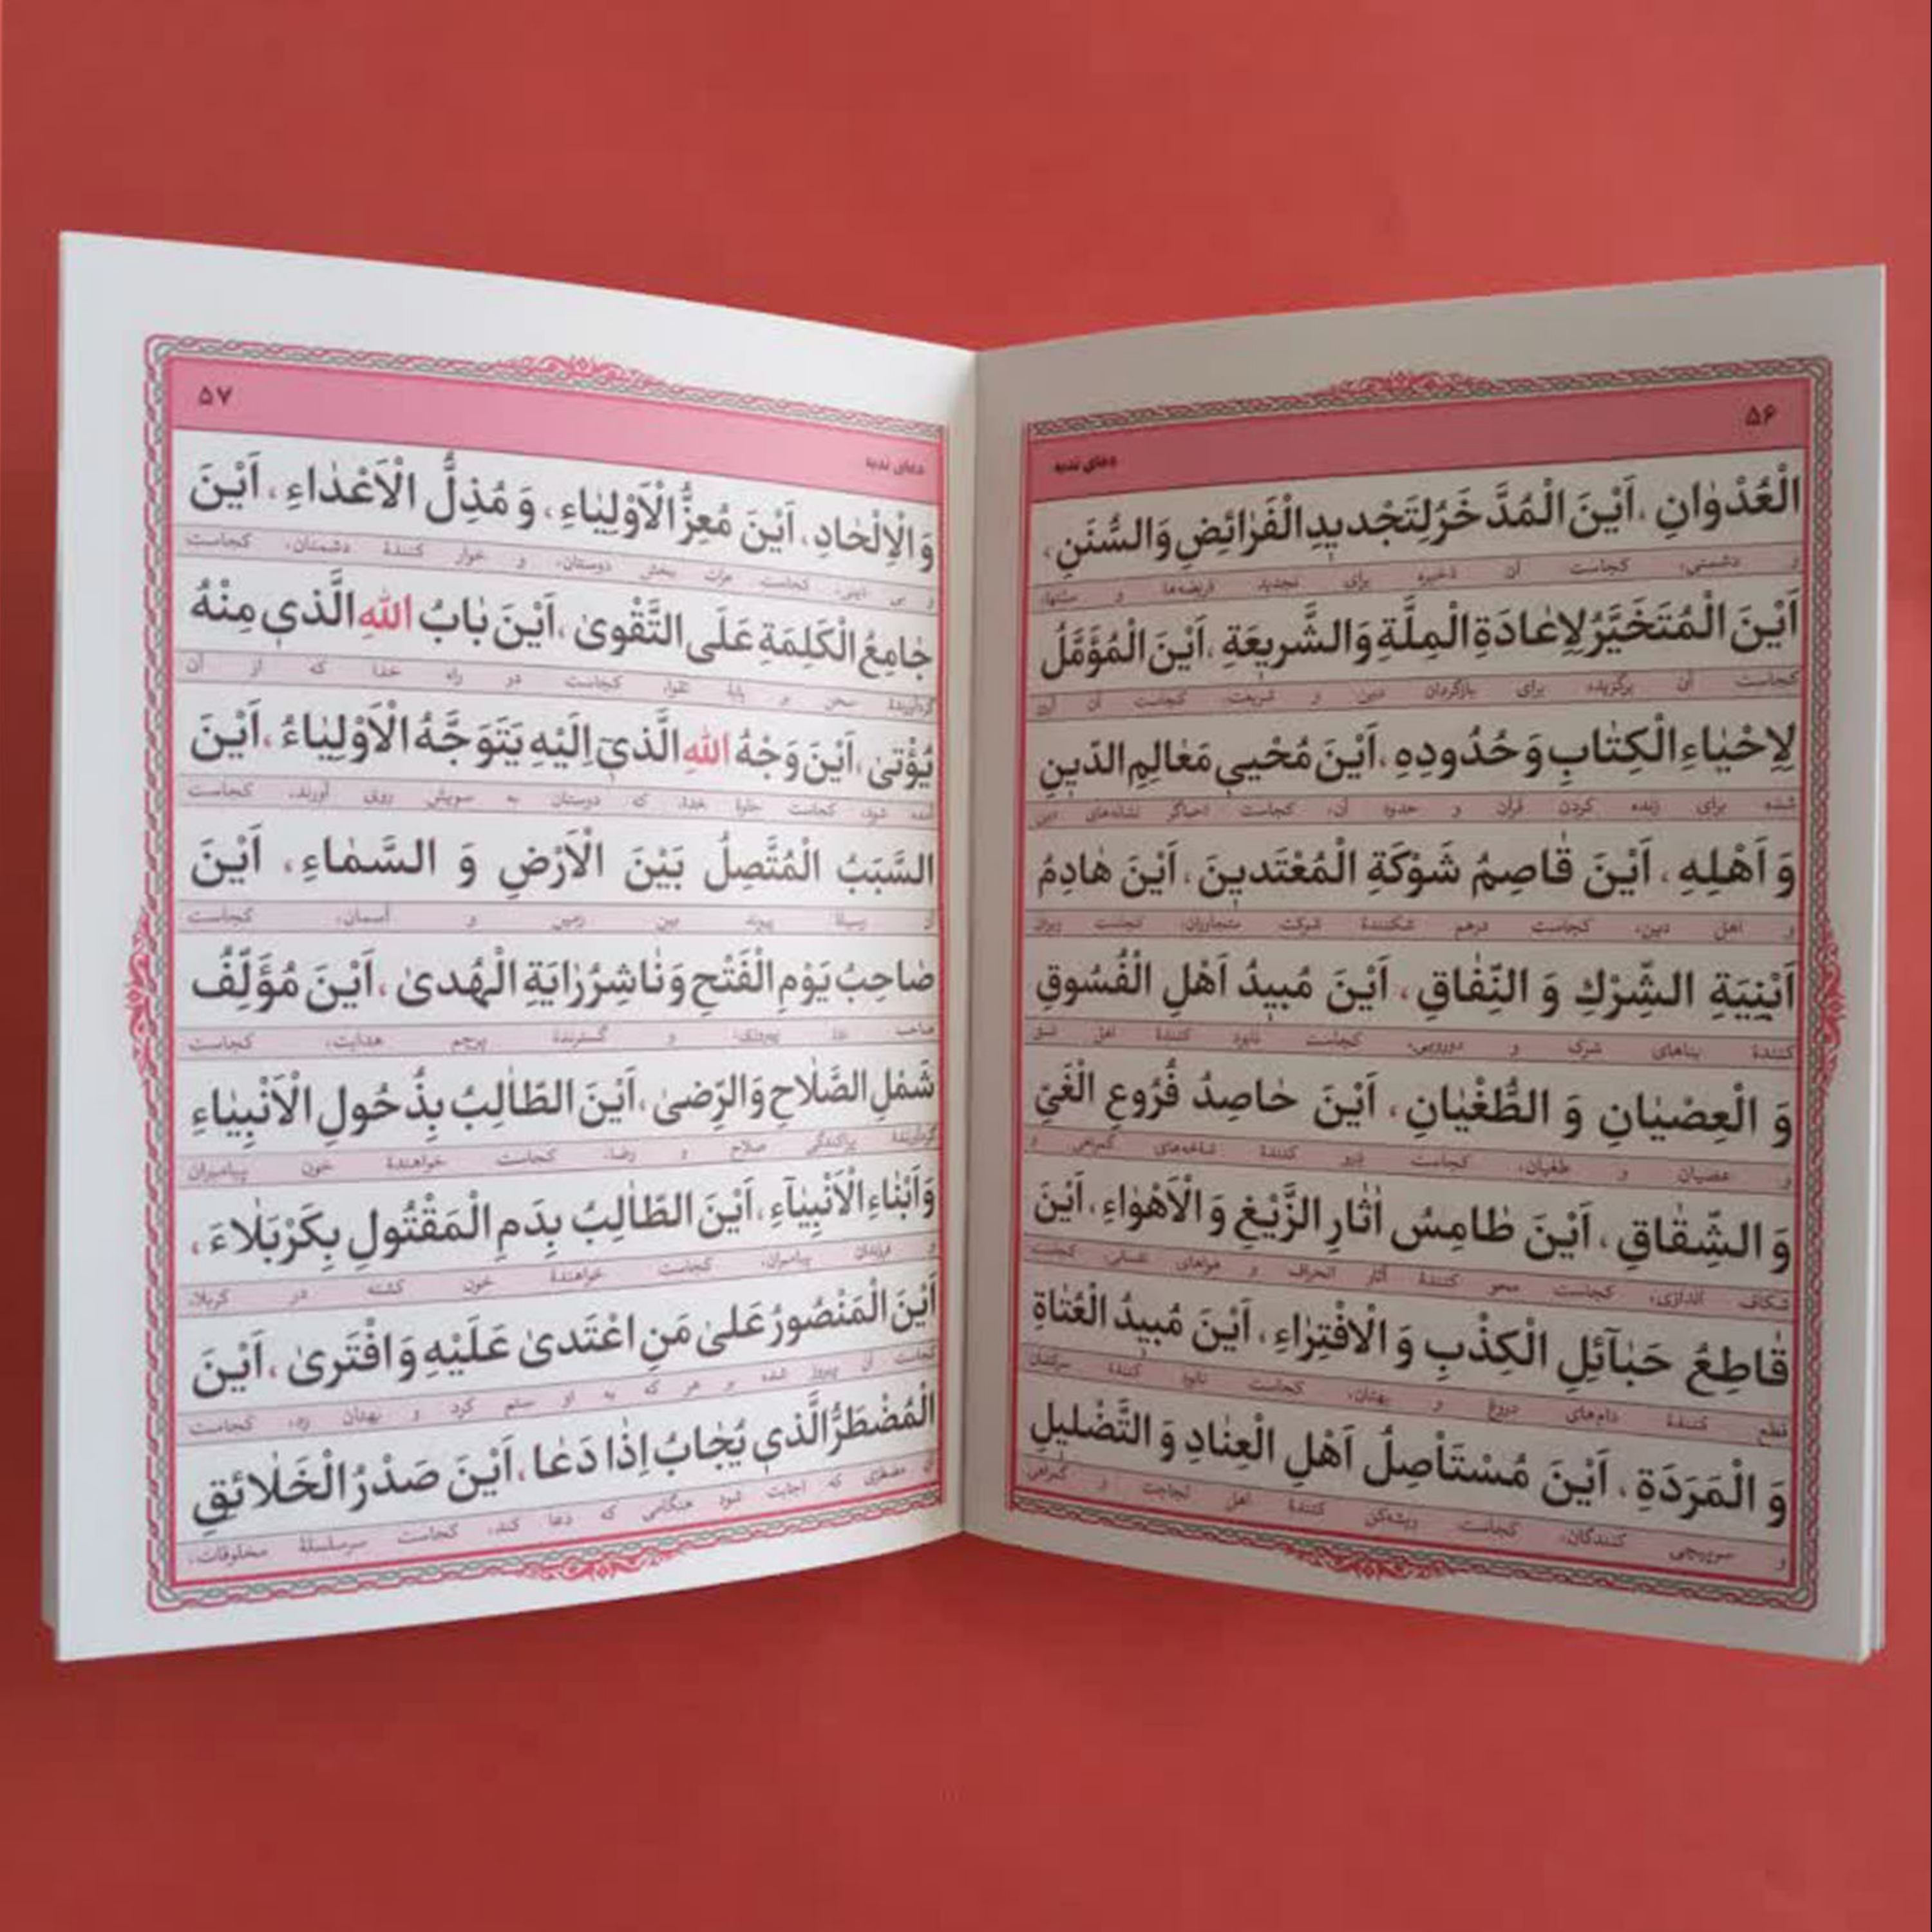 ۵۶
دعای ندبه
الْعُدْوٰانِ، اَیْنَ الْمُدَّخَرُ لِتَجْدیدِ الْفَرٰائِضِ وَ السُّنَنِ،
و دشمنی، کجاست آن ذخیره برای تجدید فریضه‌ها و سنتها،
اَیْنَ الْمُتَخَیَّرُ لِاِعٰادَةِ الْمِلَّةِ وَ الشَّریعَةِ، اَیْنَ الْمُؤَمَّلُ
کجاست آن برگزیده برای بازگردان دین و شریعت، کجاست آن آرزو
لِاِحْیٰاءِ الْکِتٰابِ وَ حُدُودِهِ، اَیْنَ مُحْیی مَعٰالِمِ الدّینِ
شده برای زنده کردن قرآن و حدود آن، کجاست احیاگر نشانه‌های دین
وَ اَهْلِهِ، اَیْنَ قٰاصِمُ شَوْکَةِ الْمُعْتَدینَ، اَیْنَ هٰادِمُ
و اهل دین، کجاست درهم شکنندهٔ شوکت متجاوزان، کجاست ویران
اَبْنِیَةِ الشِّرْكِ وَ النِّفٰاقِ، اَیْنَ مُبیدُ اَهْلِ الْفُسُوقِ
کنندهٔ بناهای شرک و دورویی، کجاست نابود کنندهٔ اهل فسق
وَ الْعِصْیٰانِ وَ الطُّغْیٰانِ، اَیْنَ حٰاصِدُ فُرُوعِ الْغَیِّ
و عصیان و طغیان، کجاست درو کنندهٔ شاخه‌های گمراهی و
وَ الشِّقٰاقِ، اَیْنَ طٰامِسُ اٰثٰارِ الزَّیْغِ وَ الْاَهْوٰاءِ، اَیْنَ
شکاف اندازی، کجاست محو کنندهٔ آثار انحراف و هواهای نفسانی، کجاست
قٰاطِعُ حَبٰآئِلِ الْکِذْبِ وَ الْاِفْتِرٰاءِ، اَیْنَ مُبیدُ الْعُتٰاةِ
قطع کنندهٔ دام‌های دروغ و بهتان، کجاست نابود کنندهٔ سرکشان
وَ الْمَرَدَةِ، اَیْنَ مُسْتَاْصِلُ اَهْلِ الْعِنٰادِ وَ التَّضْلیلِ
و سرپیچی کنندگان، کجاست ریشه‌کن کنندهٔ اهل لجاجت و گمراهی
۵۷
دعای ندبه
وَ الْاِلْحٰادِ، اَیْنَ مُعِزُّ الْاَوْلِیٰاءِ، وَ مُذِلُّ الْاَعْدٰاءِ، اَیْنَ
و بی دینی، کجاست عزت بخش دوستان، و خوار کنندهٔ دشمنان، کجاست
جٰامِعُ الْکَلِمَةِ عَلَی التَّقْوىٰ، اَیْنَ بٰابُ اللهِ الَّذی مِنْهُ
گردآورندهٔ سخن بر پایهٔ تقوا، کجاست در راه خدا که از آن
یُؤْتىٰ، اَیْنَ وَجْهُ اللهِ الَّذیٓ اِلَیْهِ یَتَوَجَّهُ الْاَوْلِیٰاءُ، اَیْنَ
آمده شود، کجاست جلوهٔ خدا، که دوستان به سویش روی آورند، کجاست
السَّبَبُ الْمُتَّصِلُ بَیْنَ الْاَرْضِ وَ السَّمٰاءِ، اَیْنَ
آن وسیلهٔ پیوند بین زمین و آسمان، کجاست
صٰاحِبُ یَوْمِ الْفَتْحِ وَ نٰاشِرُ رٰایَةِ الْهُدىٰ، اَیْنَ مُؤَلِّفُ
صاحب و گسترندهٔ پرچم هدایت، کجاست
شَمْلِ الصَّلٰاحِ وَ الرِّضىٰ، اَیْنَ الطّٰالِبُ بِذُحُولِ الْاَنْبِیٰاءِ
گردآورندهٔ پراکندگی صلاح و رضا، کجاست خواهندهٔ خون پیامبران
وَ اَبْنٰاءِ الْاَنْبِیٰآءِ، اَیْنَ الطّٰالِبُ بِدَمِ الْمَقْتُولِ بِکَرْبَلٰاءَ،
و فرزندان پیامبران، کجاست خواهندهٔ خون کشته در کربلا،
اَیْنَ الْمَنْصُورُ عَلىٰ مَنِ اعْتَدىٰ عَلَیْهِ وَ افْتَرىٰ، اَیْنَ
کجاست آن پیروز شده بر هر که به او ستم کرد و بهتان زد، کجاست
الْمُضْطَرُّ الَّذی یُجٰابُ اِذٰا دَعٰا، اَیْنَ صَدْرُ الْخَلٰائِقِ
آن مضطری که اجابت شود هنگامی که دعا کند، کجاست سرسلسلهٔ مخلوقات،